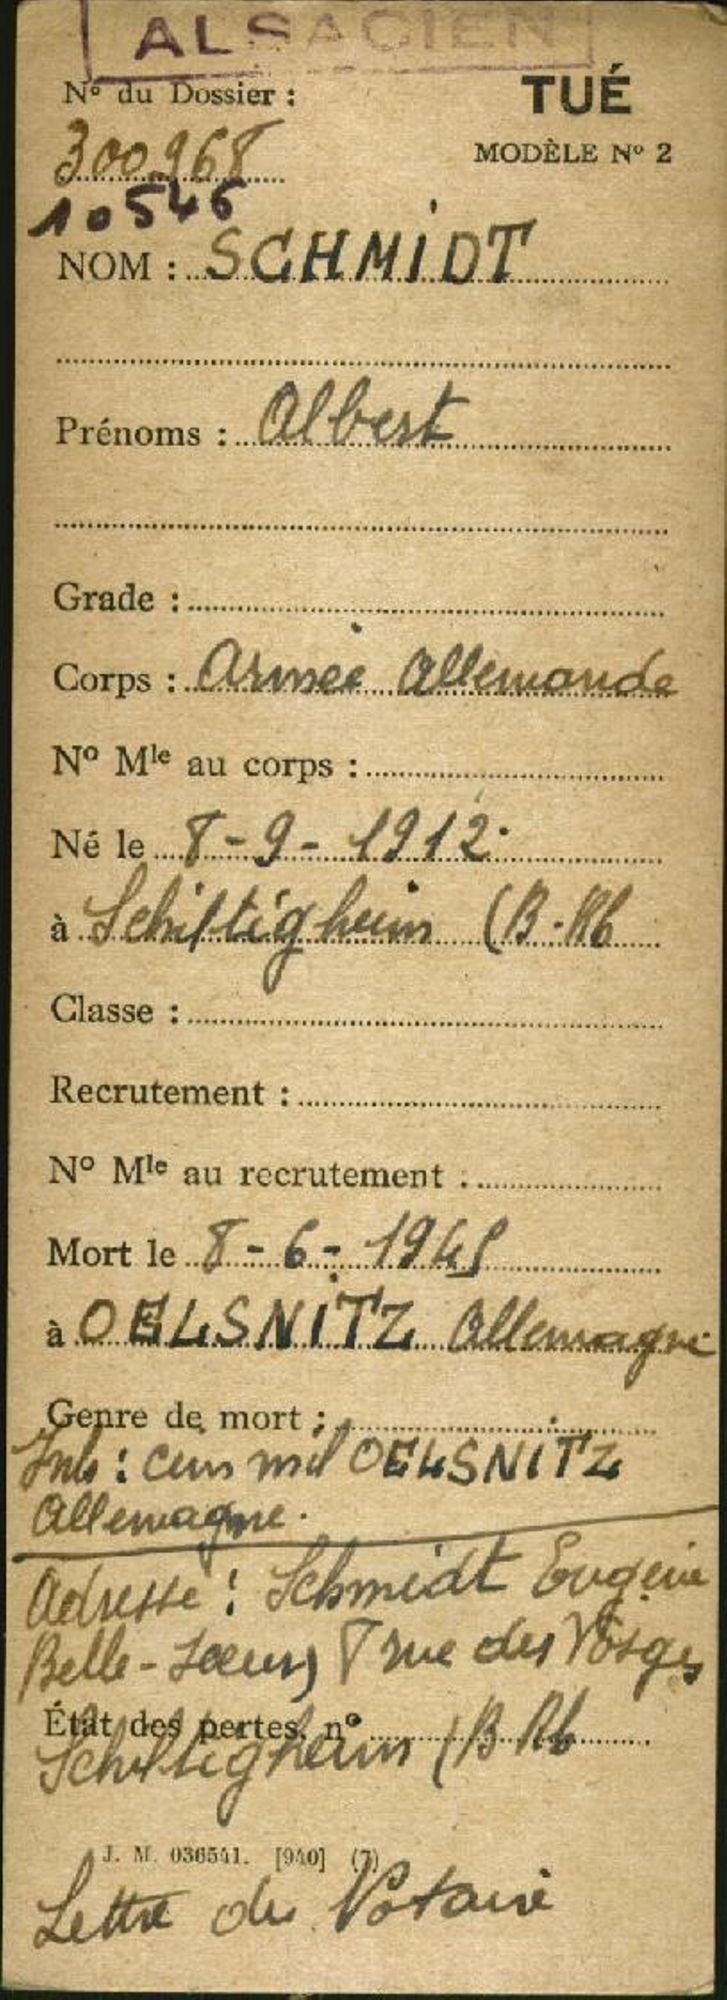 ALSACIEN
N° du Dossier :
TUÉ
300968
MODÈLE N° 2
10546
NOM : SCHMIDT
Prénoms : Albert
Grade :
Corps : Armée Allemande
N° Mle au corps :
Né le 8-9-1912
à Schiltigheim (B-Rh
Classe :
Recrutement :
N° Mle au recrutement :
Mort le 8-6-1945
à OELSNITZ Allemagne
Genre de mort :
Inh : cim mil OELSNITZ
Allemagne.
Adresse : Schmidt Eugénie
Belle-soeur, 8 rue des Vosges
État des pertes, n°
Schiltigheim (B Rh
J. M. 036541. [940] (7)
Lettre du Notaire